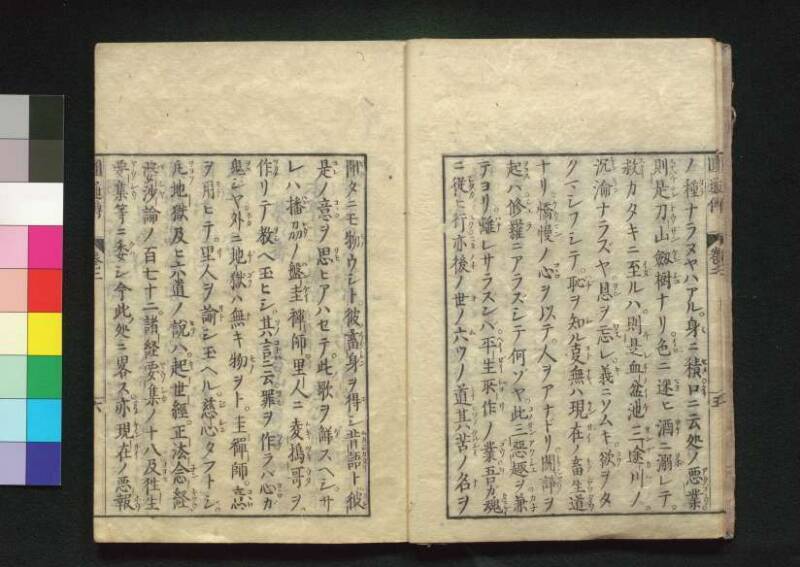 ノ種ナラヌヤハアル。身ニ積ロニ云処ノ悪業
則是刀山劔樹ナリ色ニ迷ヒ酒ニ溺レテ
救カタキニ至ルハ則是血盆池三途川ノ
沉淪ナラズヤ恩ヲ忘レ義ニソムキ欲ヲタ
クマシフシテ恥ヲ知ル㕝無ハ現在ノ畜生道
ナリ憍慢ノ心ヲ以テ人ヲアナドリ闘諍ヲ
起ハ修羅ニアラズシテ何ゾヤ此三悪趣ヲ兼
テヨリ離レサラズンバ平生所作ノ業吾カ魂
ニ従ヒ行亦後ノ世ノ六ツノ道其苦ノ名ヲ
聞タニモ物ウシト彼畜身ヲ得シ昔語ト彼
是ノ意ヲ思ヒアハセテ此歌ヲ解スヘシサ
レハ播刕ノ盤圭禅師里人ニ麦搗哥ヲ
作リテ教ヘ玉ヒシ其言ニ云罪ヲ作ラバ心カ
鬼シヤ外ニ地獄ハ無キ物ヲト圭禅師意
ヲ用ヒテ里人ヲ諭シ玉ヘル慈心タフトシ
地獄及ヒ六道ノ説ハ起世經正法念經
婆沙論ノ百七十二諸経要集ノ十八及徃生
要集等ニ委シ今此処ニ畧ス亦現在ノ悪報